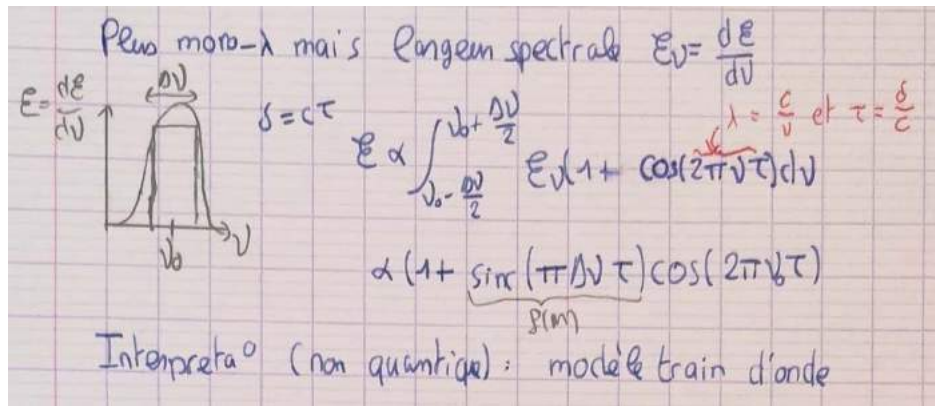 Plus mono-λ mais largeur spectrale Ɛν = dƐ/dν
Ɛ = dƐ/dν
Δν
ν0
ν
δ = cτ
Ɛ α ∫_{ν0 - Δν/2}^{ν0 + Δν/2} Ɛν(1 + cos(2πντ)dν
λ = c/ν et τ = δ/c
α (1 + sinc(πΔντ) cos(2πν0τ)
Interpreta° (non quantique) : modèle train d'onde